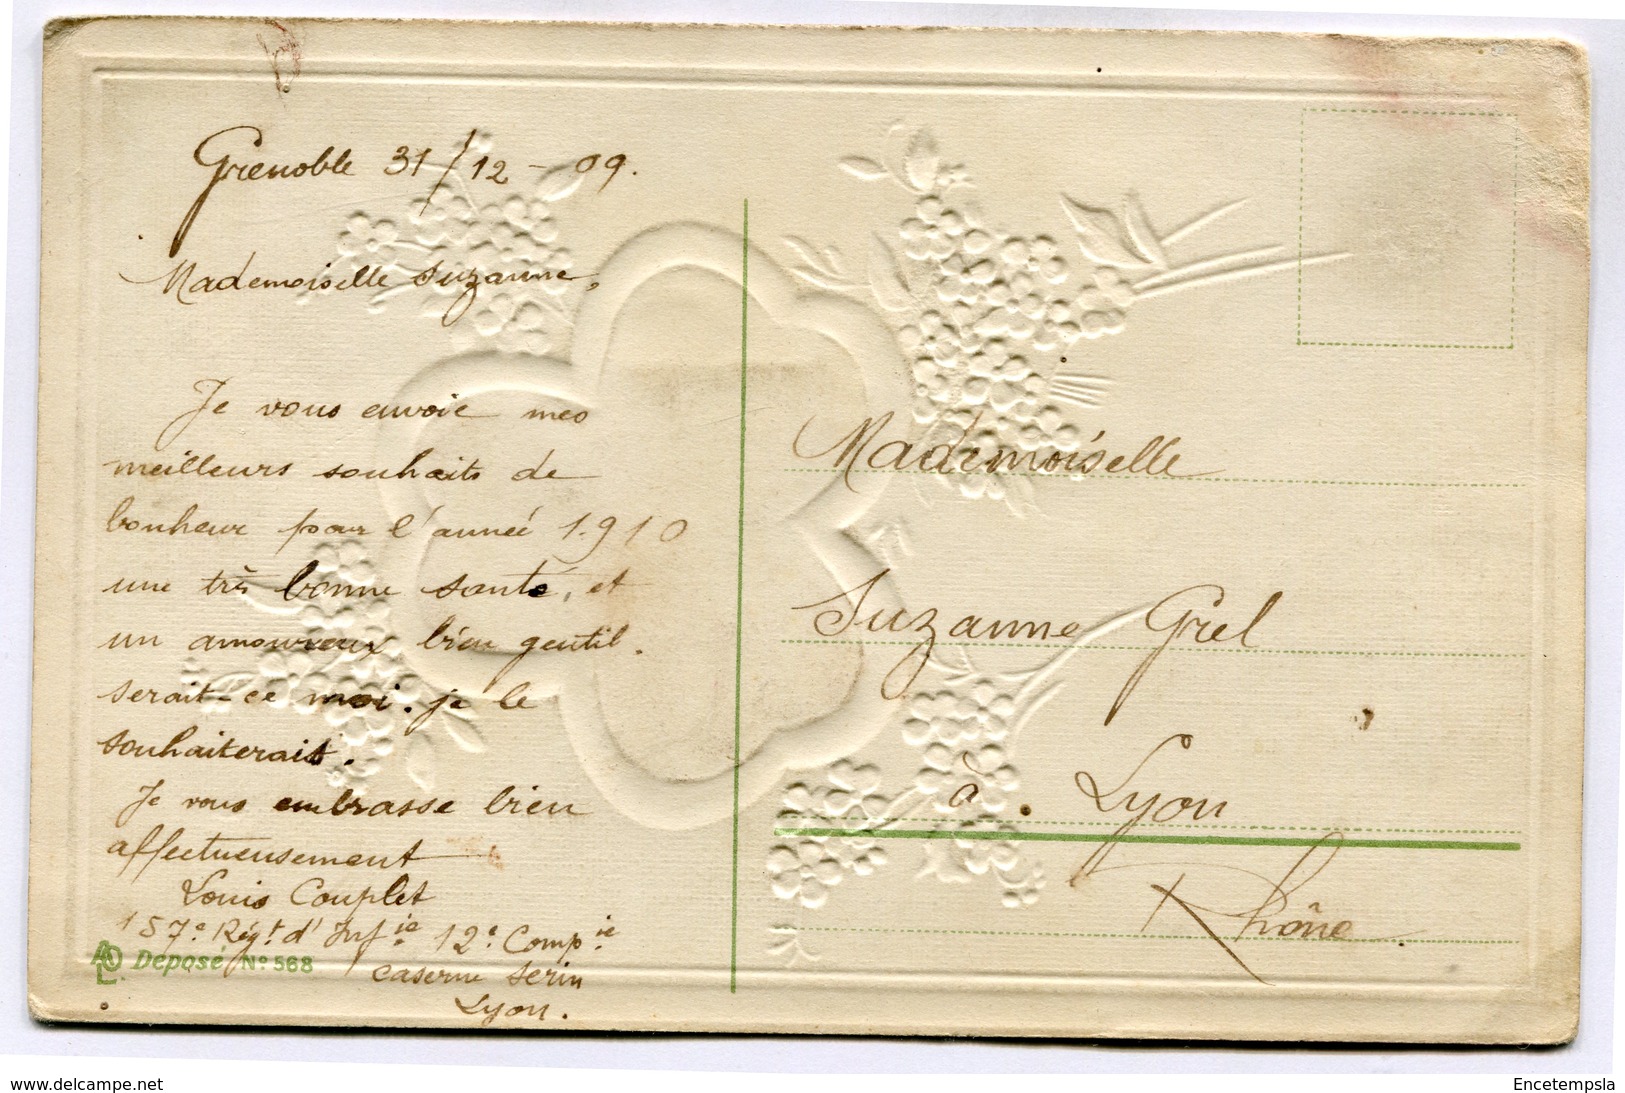 Grenoble 31/12-09.
Mademoiselle Suzanne,
Je vous envoie mes
meilleurs souhaits de
bonheur pour l'année 1910
une très bonne santé, et
un amoureux bien gentil.
serait-ce moi. je le
souhaiterais.
Je vous embrasse bien
affectueusement
Louis Couplet
157e Régt d'Infie 12e Compie
caserne Serin
Lyon.
ALO Déposé No 568
Mademoiselle
Suzanne Grel
à. Lyon
Rhône.
www.delcampe.net
Encetempsla